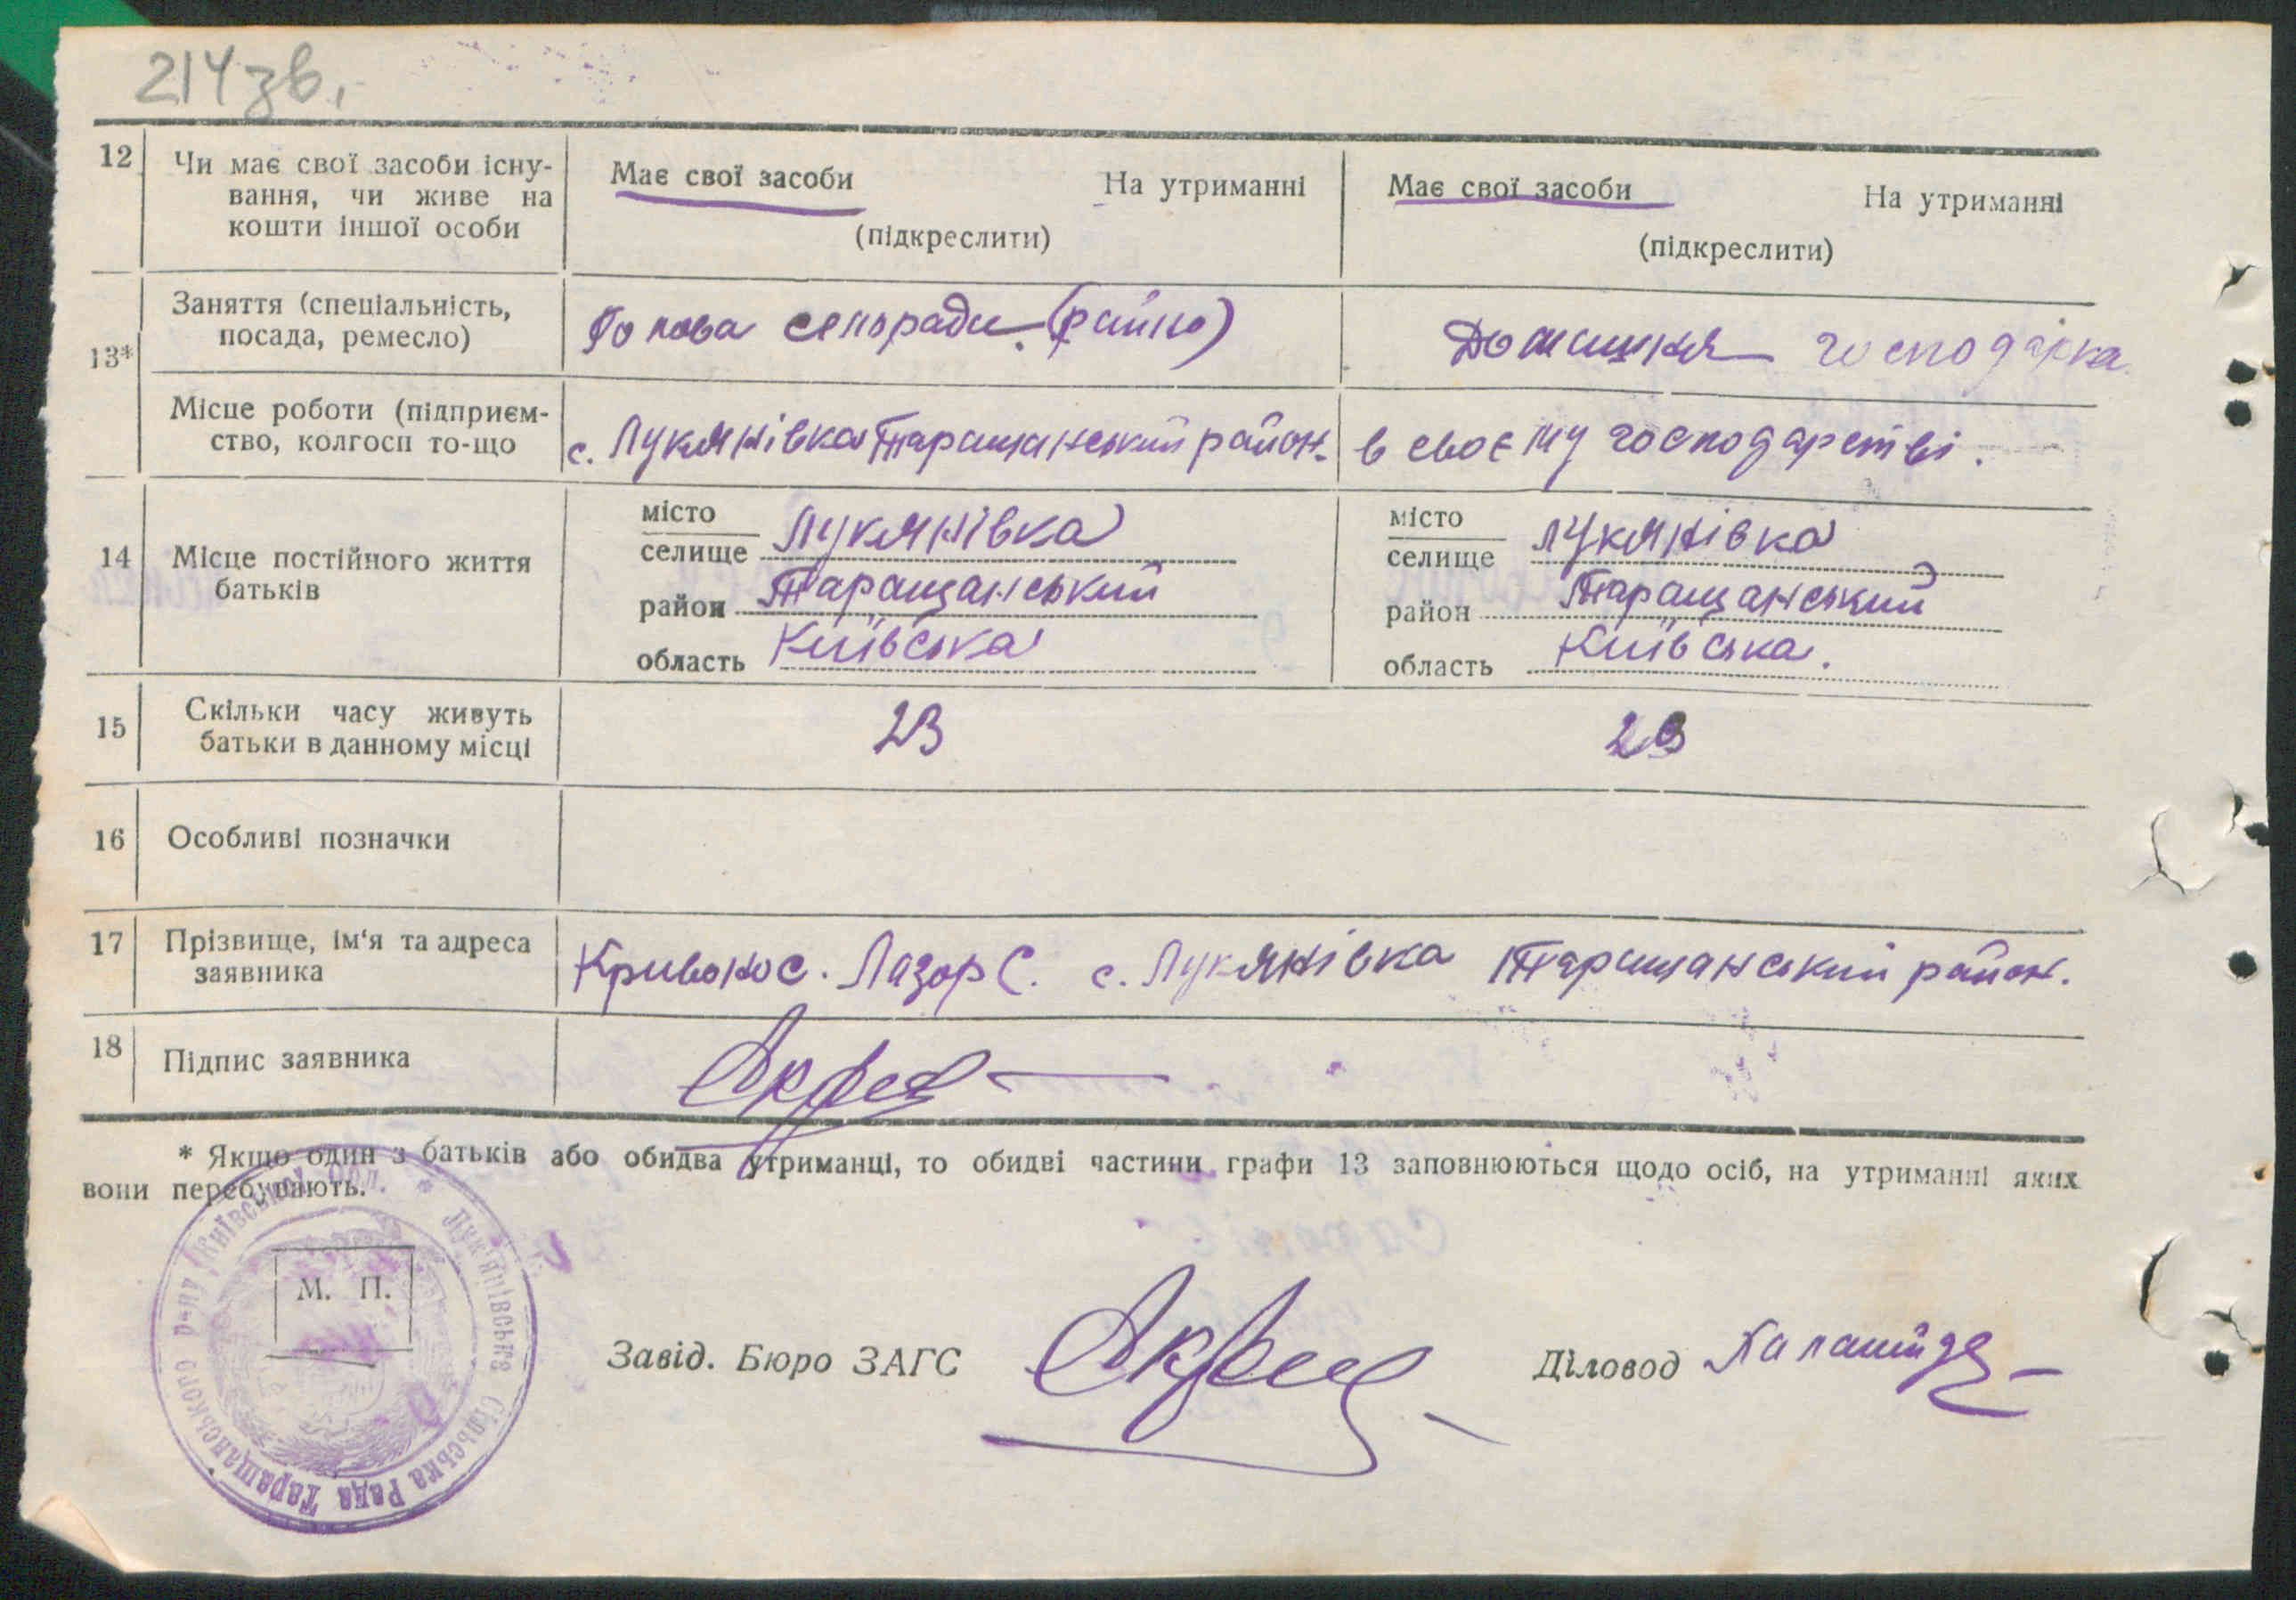 214 зв.
12 Чи має свої засоби існу- Має свої засоби На утриманні Має свої засоби На утриманні
вання, чи живе на
кошти іншої особи (підкреслити) (підкреслити)
13* Заняття (спеціальність, Голова сельради. Домашня господарка
посада, ремесло)
Місце роботи (підприєм- с. Лукянівка Таращанський район. в своєму господарстві.
ство, колгосп то-що
14 Місце постійного життя
батьків
місто
селище Лукянівка
район Таращанський
область Київська
місто
селище Лукянівка
район Таращанський
область Київська.
15 Скільки часу живуть 23 23
батьки в данному місці
16 Особливі позначки
17 Прізвище, ім'я та адреса Кривонос. Лазор С. с. Лукянівка Таращанський район.
заявника
18 Підпис заявника
* Якщо один з батьків або обидва утриманці, то обидві частини графи 13 заповнюються щодо осіб, на утриманні яких
вони перебувають.
Лук'янівська Сільська Рада Таращанського р-ну Київської обл. *
М. П.
Завід. Бюро ЗАГС
Діловод